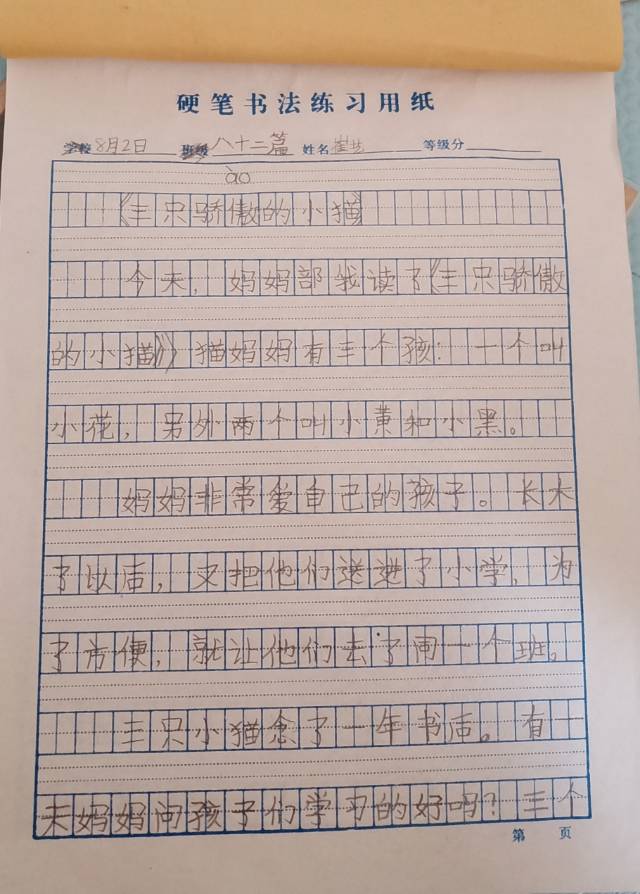 硬笔书法练习用纸
学校 8月2日 班级 八十二篇 姓名 等级分
ào
《三只骄傲的小猫》
今天，妈妈部我读了《三只骄傲
的小猫》》猫妈妈有三个孩：一个叫
小花，另外两个叫小黄和小黑。
妈妈非常爱自己的孩子。长大
了以后，又把他们送进了小学，为
了方便，就让他们去了同一个班。
三只小猫念了一年书后。有一
天妈妈问孩子们学习的好吗？三个
第 页